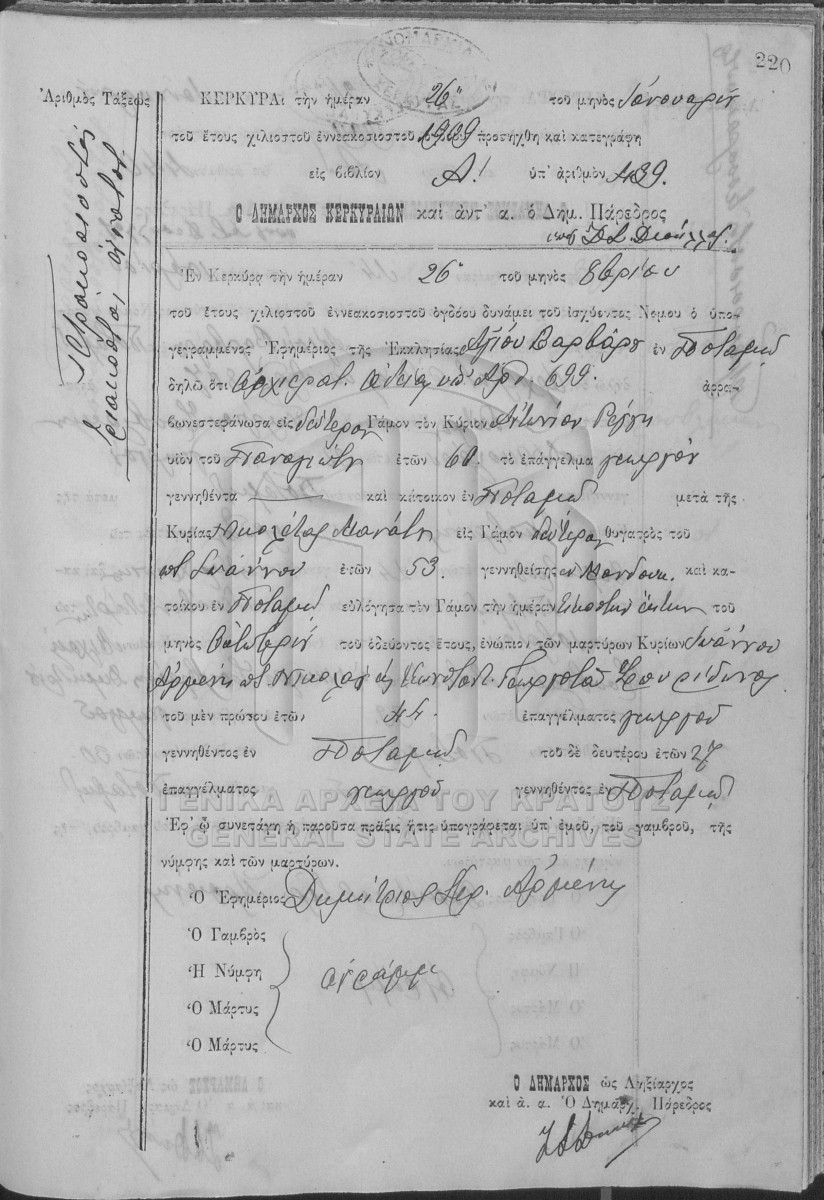 220
Ἀριθμὸς Τάξεως
Τετρακόσιοστὴ
τριακοστὴ ἐννάτη.
ΚΕΡΚΥΡΑ: τὴν ἡμέραν 26η τοῦ μηνὸς Ἰανουαρίου
τοῦ ἔτους χιλιοστοῦ ἐννεακοσιοστοῦ 1909 προσήχθη καὶ κατεγράφη
εἰς βιβλίον Α! ὑπ' ἀριθμὸν 439.
Ὁ ΔΗΜΑΡΧΟΣ ΚΕΡΚΥΡΑΙΩΝ καὶ ἀντ' α. ὁ Δημ. Πάρεδρος
Ἐν Κερκύρᾳ τὴν ἡμέραν 26η τοῦ μηνὸς 8βρίου
τοῦ ἔτους χιλιοστοῦ ἐννεακοσιοστοῦ ὀγδόου δυνάμει τοῦ ἰσχύοντος Νομου ὁ ὑπο-
γεγραμμένος Ἐφημέριος τῆς Ἐκκλησίας Ἁγίου Βαρβάρου ἐν Ποταμῷ
δηλῶ ὅτι ἀρχιερατ. ἀδείᾳ ὑπ' Ἀρι. 699. ἀρρα-
βωνεστεφάνωσα εἰς δεύτερον Γάμον τὸν Κύριον Ἀντώνιον
υἱὸν τοῦ Παναγιώτη ἐτῶν 60. τὸ ἐπάγγελμα γεωργὸν
γεννηθέντα καὶ κάτοικον ἐν Ποταμῷ μετὰ τῆς
Κυρίας Νικολέτας Μανάτη εἰς Γάμον δεύτερον θυγατρὸς τοῦ
ποτὲ Ἰωάννου ἐτῶν 53. γεννηθείσης ἐν Μανδουκ. καὶ κα-
τοίκου ἐν Ποταμῷ εὐλόγησα τὸν Γάμον τὴν ἡμέραν εἰκοστὴν ἕκτην τοῦ
μηνὸς Ὀκτωβρίου τοῦ ὁδεύοντος ἔτους, ἐνώπιον τῶν μαρτύρων Κυρίων Ἰωάννου
Ἀρμένη ποτὲ Νικολάου καὶ Κωνσταντ. Γεωργατᾶ Σπυρίδωνος
τοῦ μὲν πρώτου ἐτῶν 44. ἐπαγγέλματος γεωργοῦ
γεννηθέντος ἐν Ποταμῷ τοῦ δὲ δευτέρου ἐτῶν 27
ἐπαγγέλματος γεωργοῦ γεννηθέντος ἐν Ποταμῷ
ΓΕΝΙΚΑ ΑΡΧΕΙΑ ΤΟΥ ΚΡΑΤΟΥΣ
Ἐφ' ᾧ συνετάγη ἡ παροῦσα πρᾶξις ἥτις ὑπογράφεται ὑπ' ἐμοῦ, τοῦ γαμβροῦ, τῆς
GENERAL STATE ARCHIVES
νύμφης καὶ τῶν μαρτύρων.
Ὁ Ἐφημέριος Δημήτριος Ἱερ. Ἀρμένης
Ὁ Γαμβρὸς
Ἡ Νύμφη ἀγράμμ.
Ὁ Μάρτυς
Ὁ Μάρτυς
Ὁ ΔΗΜΑΡΧΟΣ ὡς Ληξίαρχος
καὶ ἀ. α. Ὁ Δημαρχ. Πάρεδρος